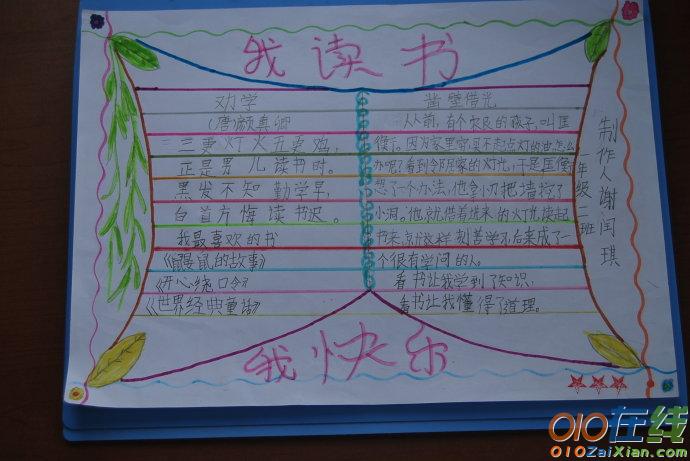 我读书
劝学
(唐)颜真卿
三更灯火五更鸡,
正是男儿读书时。
黑发不知勤学早,
白首方悔读书迟。
我最喜欢的书
《鼹鼠的故事》
《开心绕口令》
《世界经典童话》
凿壁借光
从前,有个农民的孩子,叫匡
衡。因为家里穷,买不起点灯的油怎么
办呢?看到令阝居家的灯光,于是匡衡
想了一个办法,他拿刀把墙挖了
小洞。他就借着进来的灯光读起
书来,就这样刻苦学习,后来成了一
个很有学问的人。
看书让我学到了知识,
看书让我懂得了道理。
年级二班
制作人谢闰琪
我快乐
010在线
010ZaiXian.com